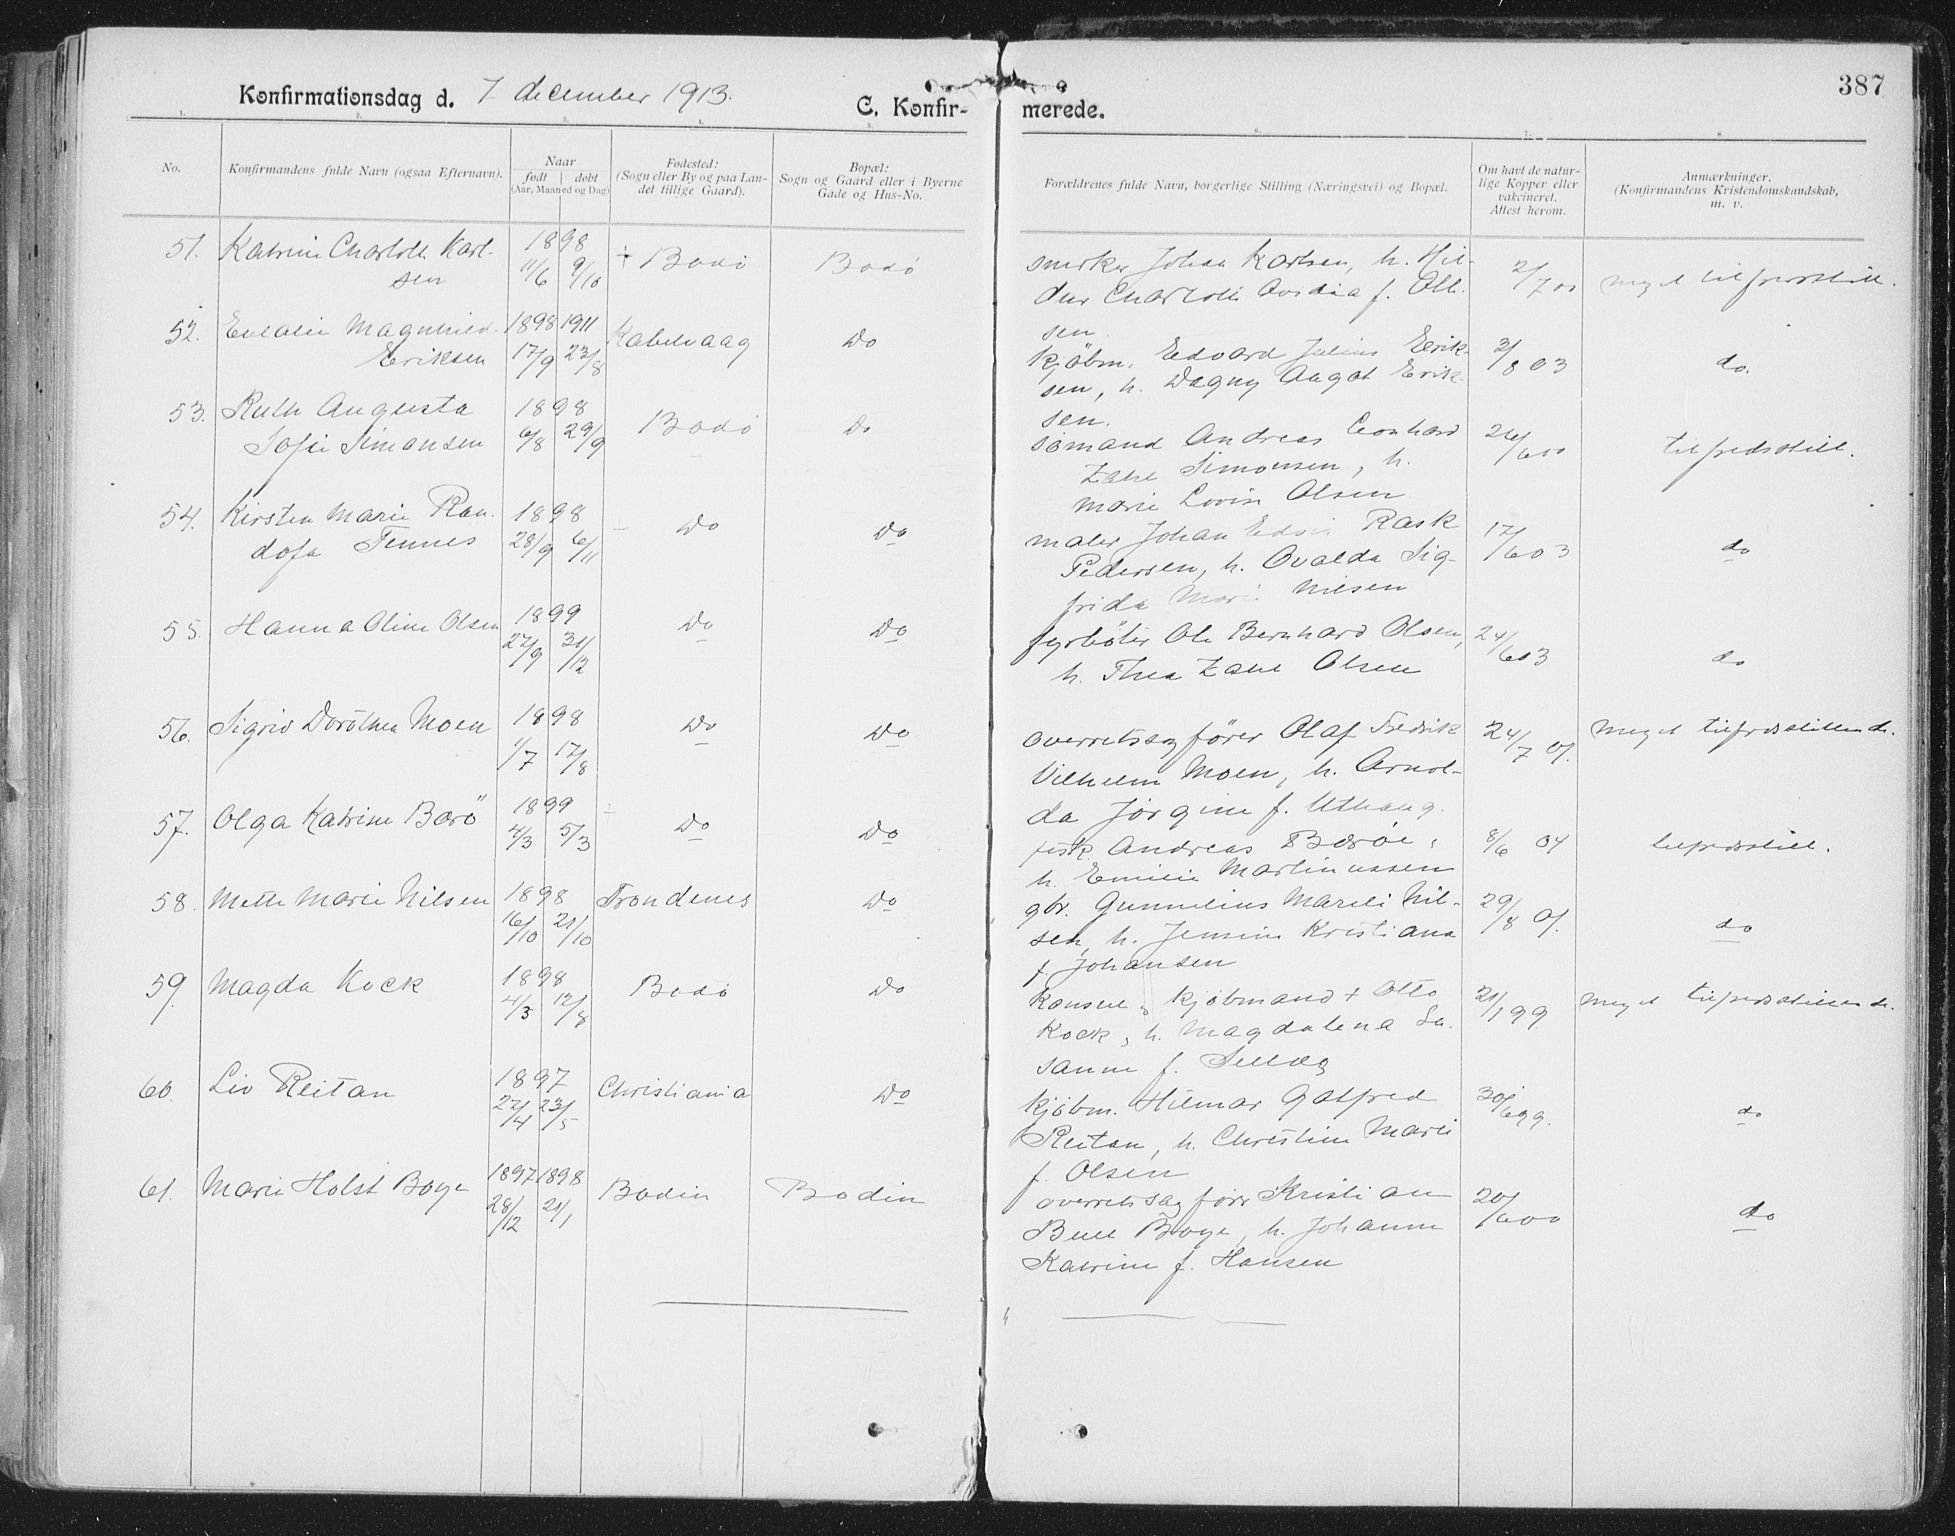 Konfirmationsdag d. 7 december 1913.
C. Konfir-
merede.
387
1. 2. 3. 4. 5. 6. 7. 8
No.
Konfirmandens fulde Navn (ogsaa Efternavn).
Naar
født døbt
(Aar, Maaned og Dag)
Fødested:
(Sogn eller By og paa Lan-
det tillige Gaard).
Bopæl:
Sogn og Gaard eller i Byerne
Gade og Hus-No.
Forældrenes fulde Navn, borgerlige Stilling (Næringsvei) og Bopæl.
Om havt de natur-
lige Kopper eller
vakcineret.
Attest herom.
Anmærkninger.
(Konfirmandens Kristendomskundskab,
m. v.
51. Katrine Charlotte Karl-
sen
1898
11/6 9/10
÷ Bodø
Bodø
snerker Johan Karlsen, h. Hil-
dur Charlotte Ovidia f. Oll-
sen.
2/7 00
meget tilfredsstill.
52. Eulalie Magnhild
Eriksen
1898 1911
17/9 23/8
Kabelvaag
Do
kjöbm. Edvard Julius Erik-
sen, h. Dagny Aagot Erik-
sen.
3/8 03
do.
53. Ruth Augusta
Sofie Simonsen
1898
6/8 29/9
Bodø
Do
sømand Andreas Leonhard
Zahl Simonsen, h.
Marie Lovise Olsen
26/6 00
tilfredsstill.
54. Kirsten Marie Ran-
dofa Tennes
1898
28/9 6/11
Do
Do
maler Johan Edvin Rask
Pedersen, h. Ovalda Sig-
frida Marie Nilsen
17/6 03
do
55. Hanna Oline Olsen
1899
27/9 31/12
Do
Do
fyrbøter Ole Bernhard Olsen,
h. Thea Zahl Olsen
24/6 03
do
56. Sigrid Dorothea Moen
1898
1/7 17/8
Do
Do
overretssagfører Olaf Fredrik
Vilhelm Moen, h. Arnol-
da Jørgine f. Uthaug.
24/7 01.
meget tilfredsstillende.
57. Olga Katrine Barö
1899
4/3 5/3
÷
Do
Do
fisk. Andreas Barøe,
h. Emilie Martinussen
8/6 04
tilfredsstill.
58. Mette Marie Nilsen
1898
16/10 21/10
Trondenes
Do
gbr. Gunnelius Mareli Nil-
sen, h. Jensine Kristiana
f. Johansen
29/8 01.
do
59. Magda Kock
1898
4/3 12/8
Bodø
Do
Konsul, kjøbmand + Otto
Kock, h. Magdalena Su-
sanne f. Sellæg
21/1 99
meget tilfredsstillende.
60. Liv Reitan
1897
27/4 23/5
Christiania
Do
kjøbm. Hilmar Gotfred
Reitan, h. Christine Marie
f. Olsen
30/6 99.
do
61. Marie Holst Boye
1897 1898
28/12 21/1
Bodin
Bodin
overretssagfører Kristian
Bull Boye, h. Johanne
Katrine f. Hansen
20/6 00
do